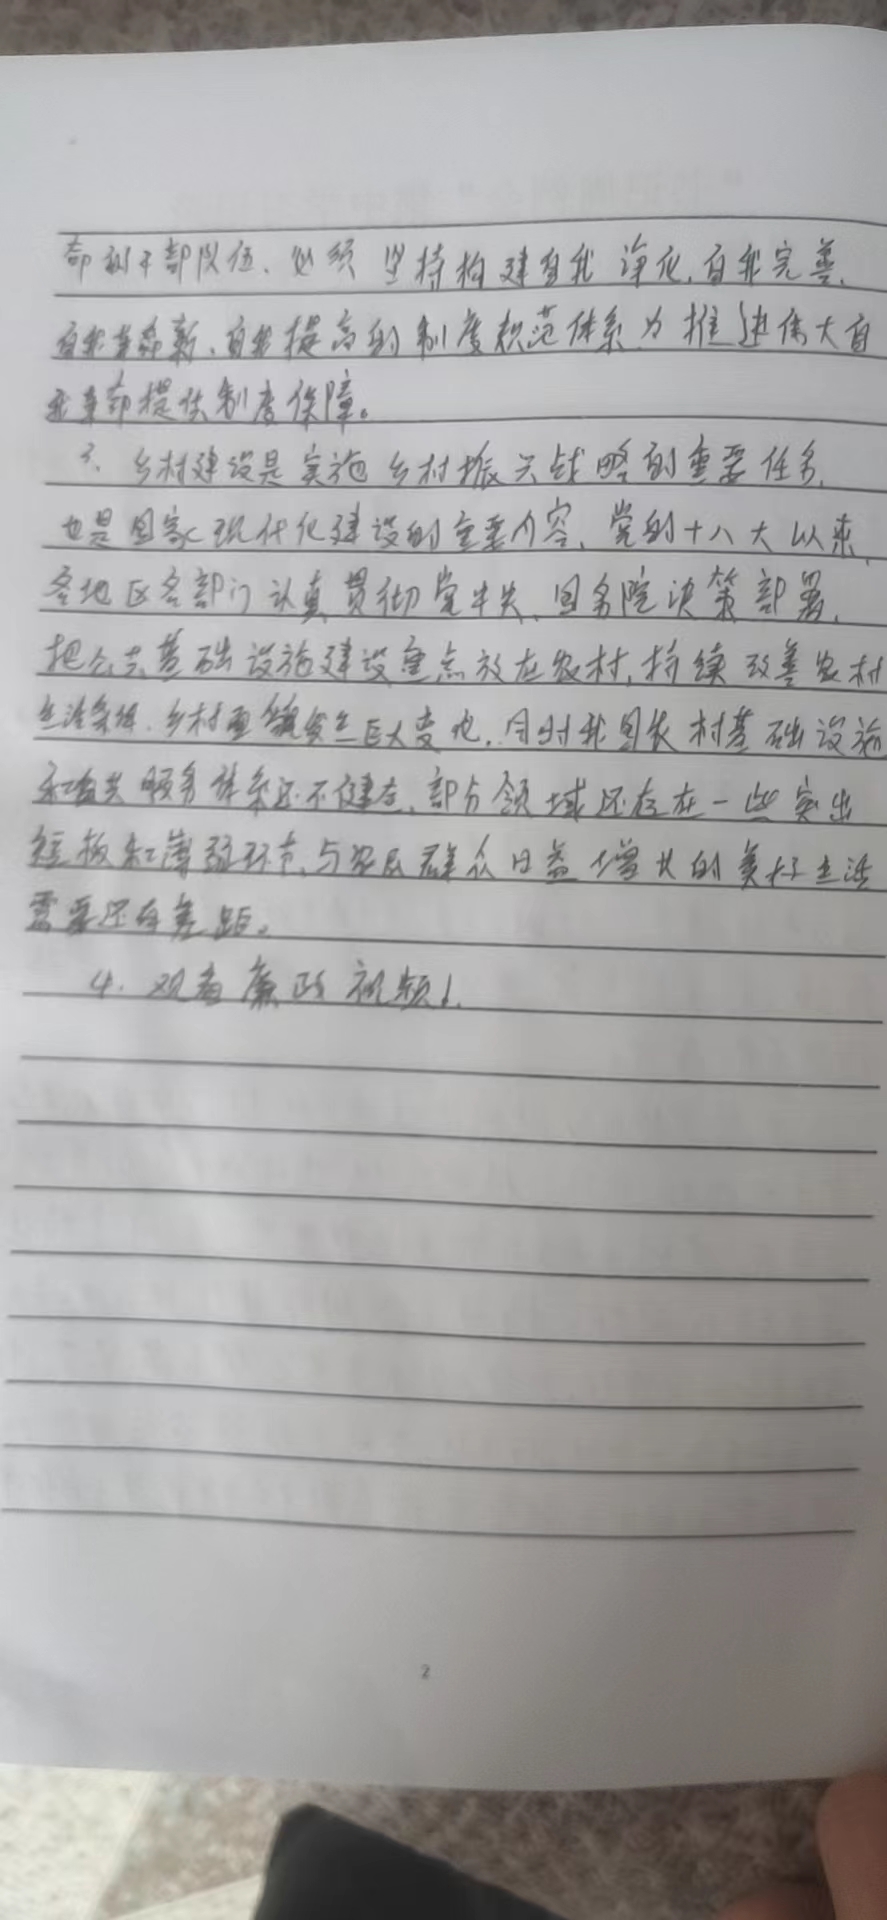 部制干部队伍、必须坚持构建自我净化、自我完善、
自我革新、自我提高的制度规范体系为推进伟大自
我革命提供制度保障。
3、乡村建设是实施乡村振兴战略的重要任务,
也是国家现代化建设的重要内容、党的十八大以来,
各地区各部门认真贯彻党中央、国务院决策部署,
把公共基础设施建设重点放在农村,持续改善农村
生活条件、乡村面貌发生巨大变化,同时我国农村基础设施
和公共服务体系还不健全、部分领域还存在一些突出
短板和薄弱环节、与农民群众日益增长的美好生活
需要还有差距。
4、观看廉政视频1.
2